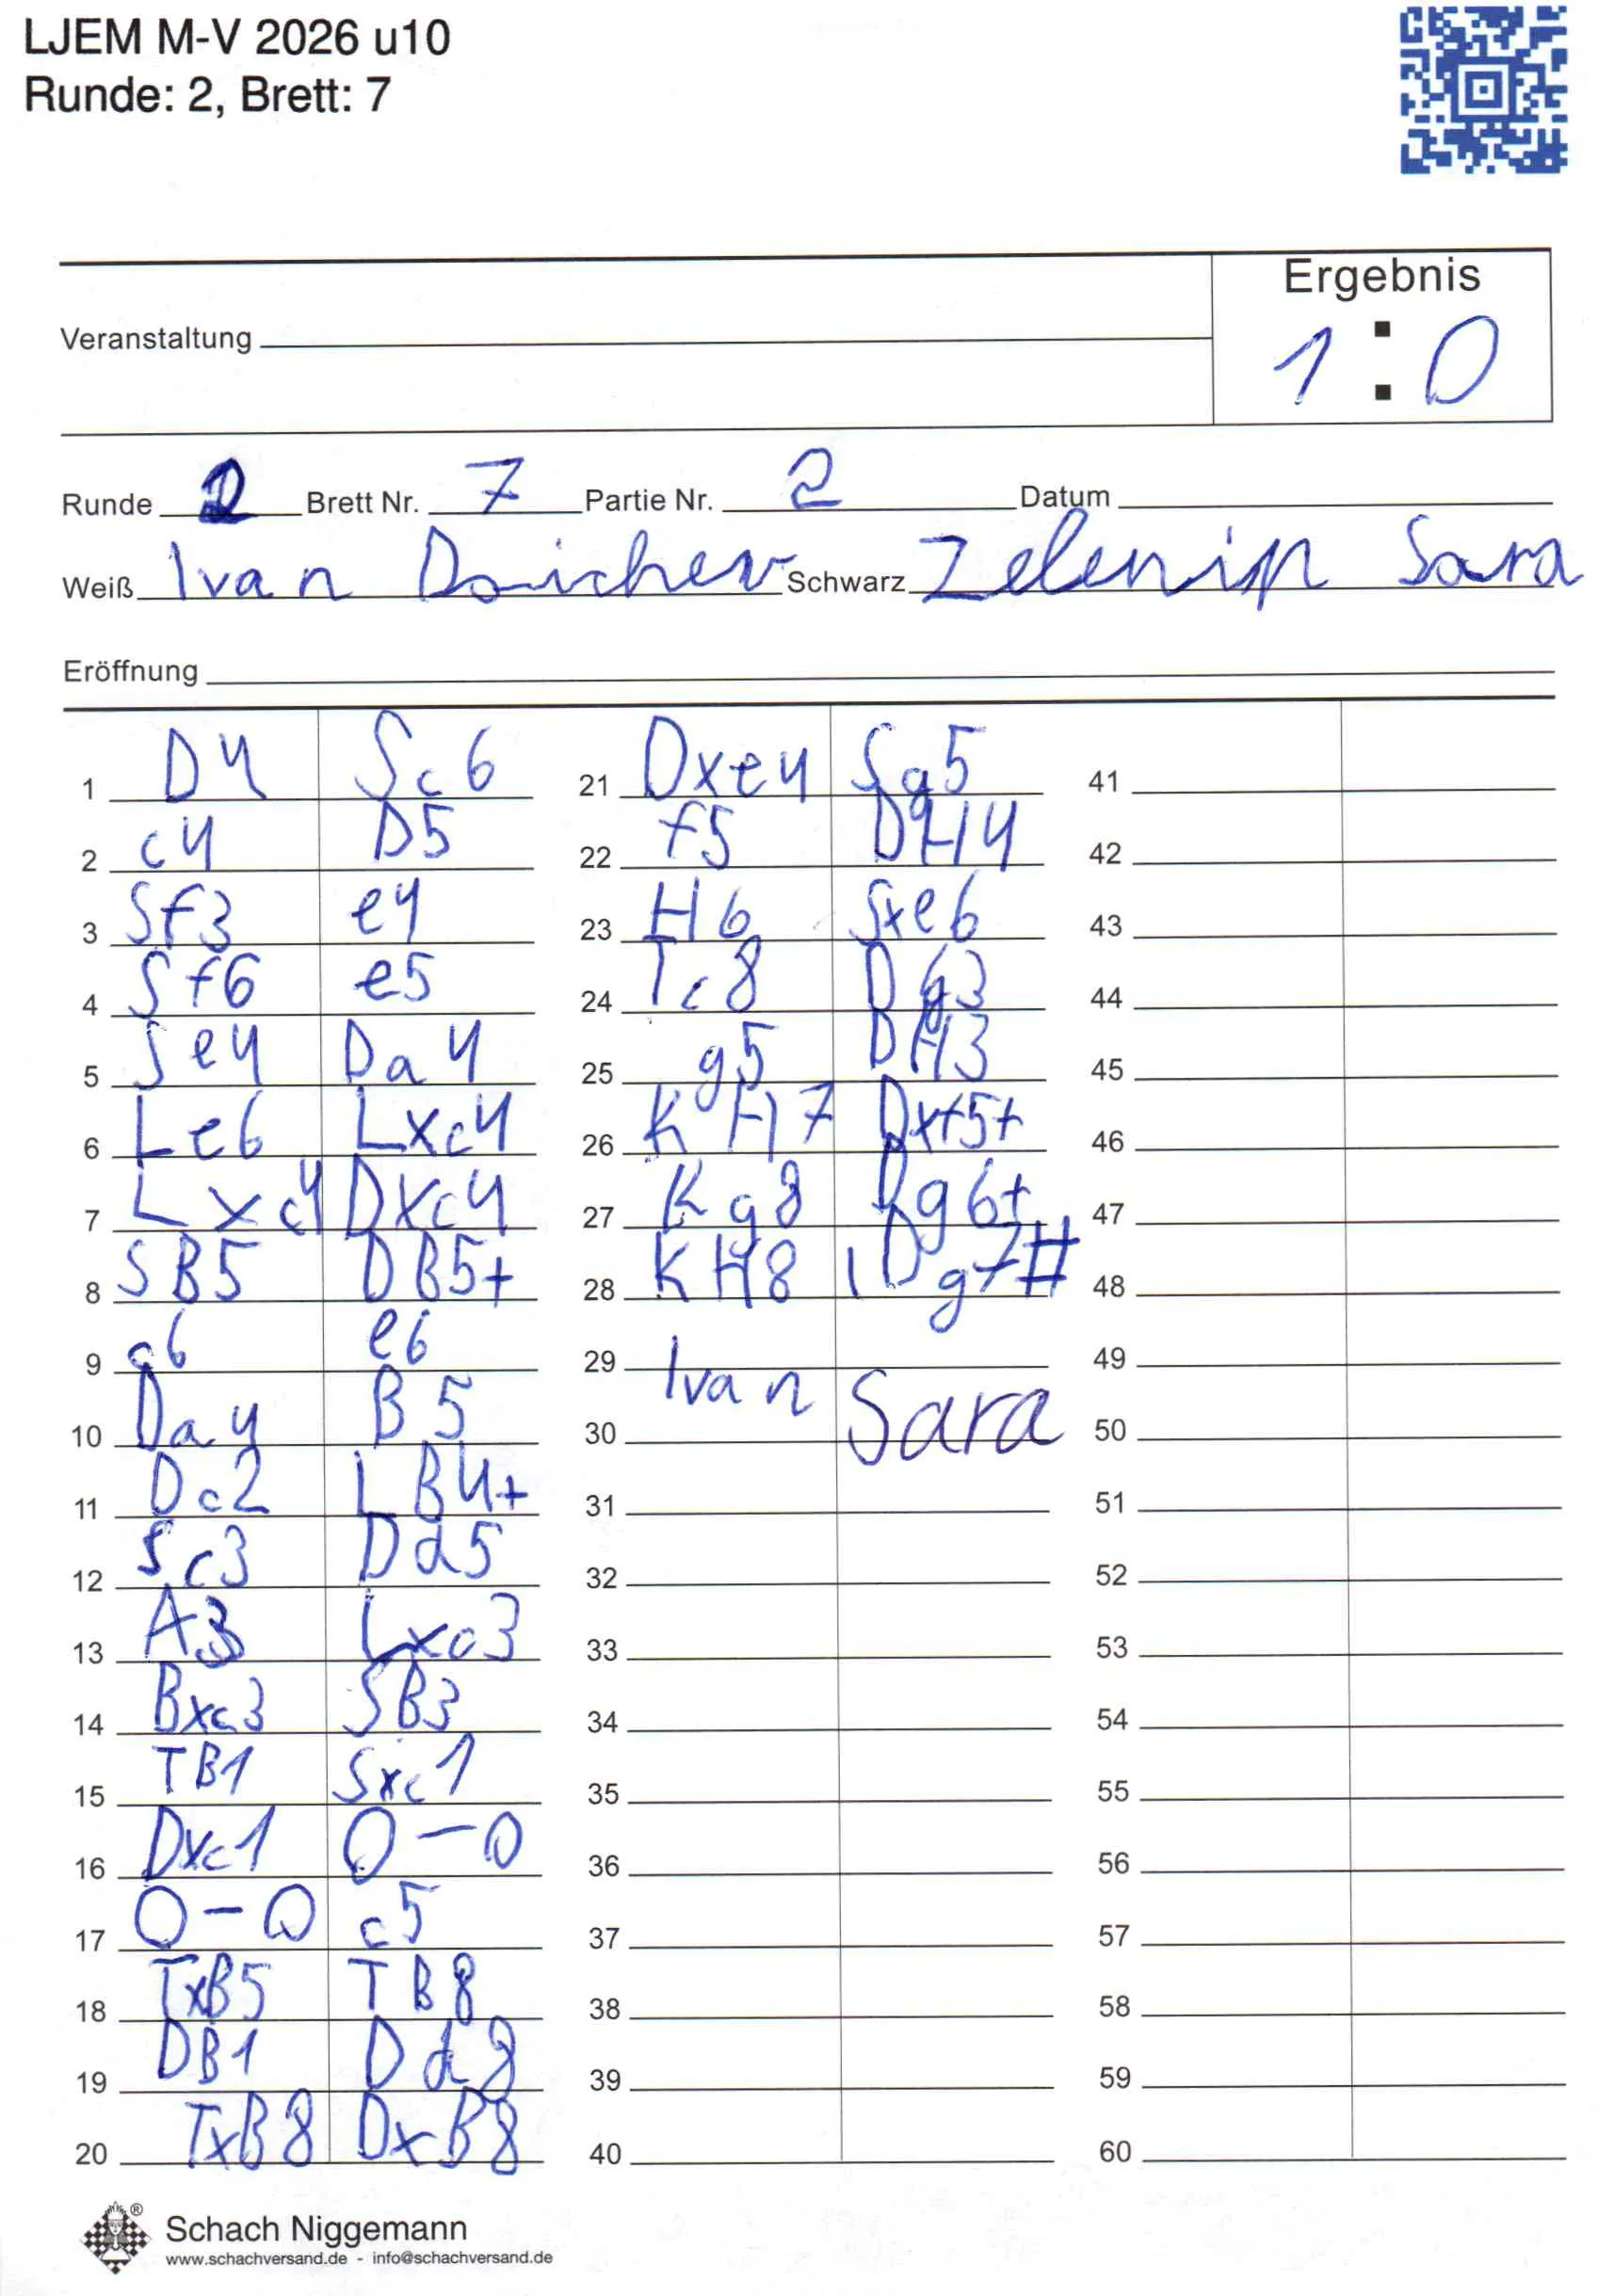 LJEM M-V 2026 u10
Runde: 2, Brett: 7
Ergebnis
Veranstaltung 1 : 0
Runde 2 Brett Nr. 7 Partie Nr. 2 Datum
Weiß Ivan Schwarz Zelenin Sara
Eröffnung
1 D4 Sc6 21 Dxe4 Sg5 41
2 c4 D5 22 f5 DH4 42
3 Sf3 e4 23 H6 Sxe6 43
4 Sf6 e5 24 Tc8 Dg3 44
5 Se4 Da4 25 g5 DH3 45
6 Le6 Lxc4 26 KH7 Dxf5+ 46
7 Lxc4 Dxc4 27 Kg8 Dg6+ 47
8 SB5 DB5+ 28 KH8 Dg7# 48
9 c6 e6 29 Ivan 49
10 Da4 B5 30 Sara 50
11 Dc2 LB4+ 31 51
12 Sc3 Dd5 32 52
13 A3 Lxc3 33 53
14 Bxc3 SB3 34 54
15 TB1 Sxc1 35 55
16 Dxc1 O-O 36 56
17 O-O c5 37 57
18 TxB5 TB8 38 58
19 DB1 Dd8 39 59
20 TxB8 DxB8 40 60
Schach Niggemann
www.schachversand.de - info@schachversand.de